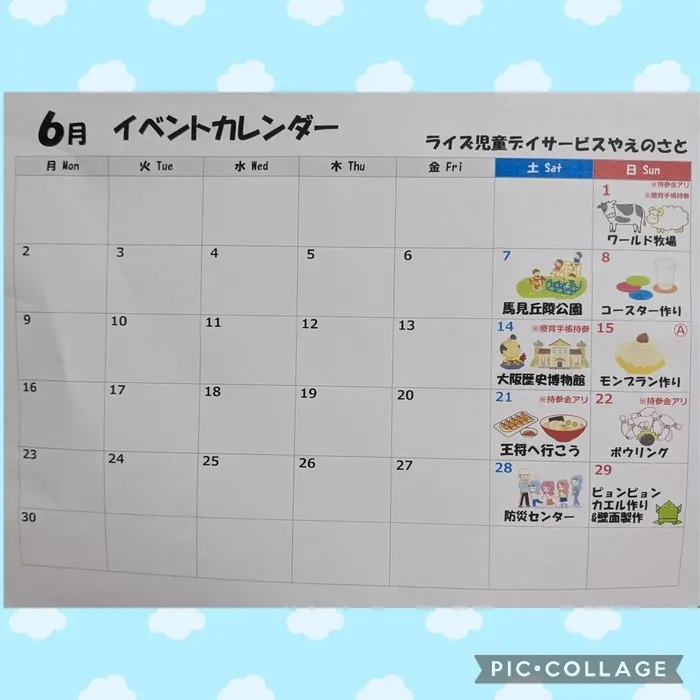 6月 イベントカレンダー
ライズ児童デイサービスやえのさと
月 Mon 火 Tue 水 Wed 木 Thu 金 Fri 土 Sat 日 Sun
1
※持参金アリ
※療育手帳持参
ワールド牧場
2 3 4 5 6 7 8
馬見丘陵公園 コースター作り
9 10 11 12 13 14 ※療育手帳持参 15 A
大阪歴史博物館 モンブラン作り
16 17 18 19 20 21 ※持参金アリ 22 ※持参金アリ
王将へ行こう ボウリング
23 24 25 26 27 28 29
防災センター
ピョンピョン
カエル作り
&壁面製作
30
PIC•COLLAGE